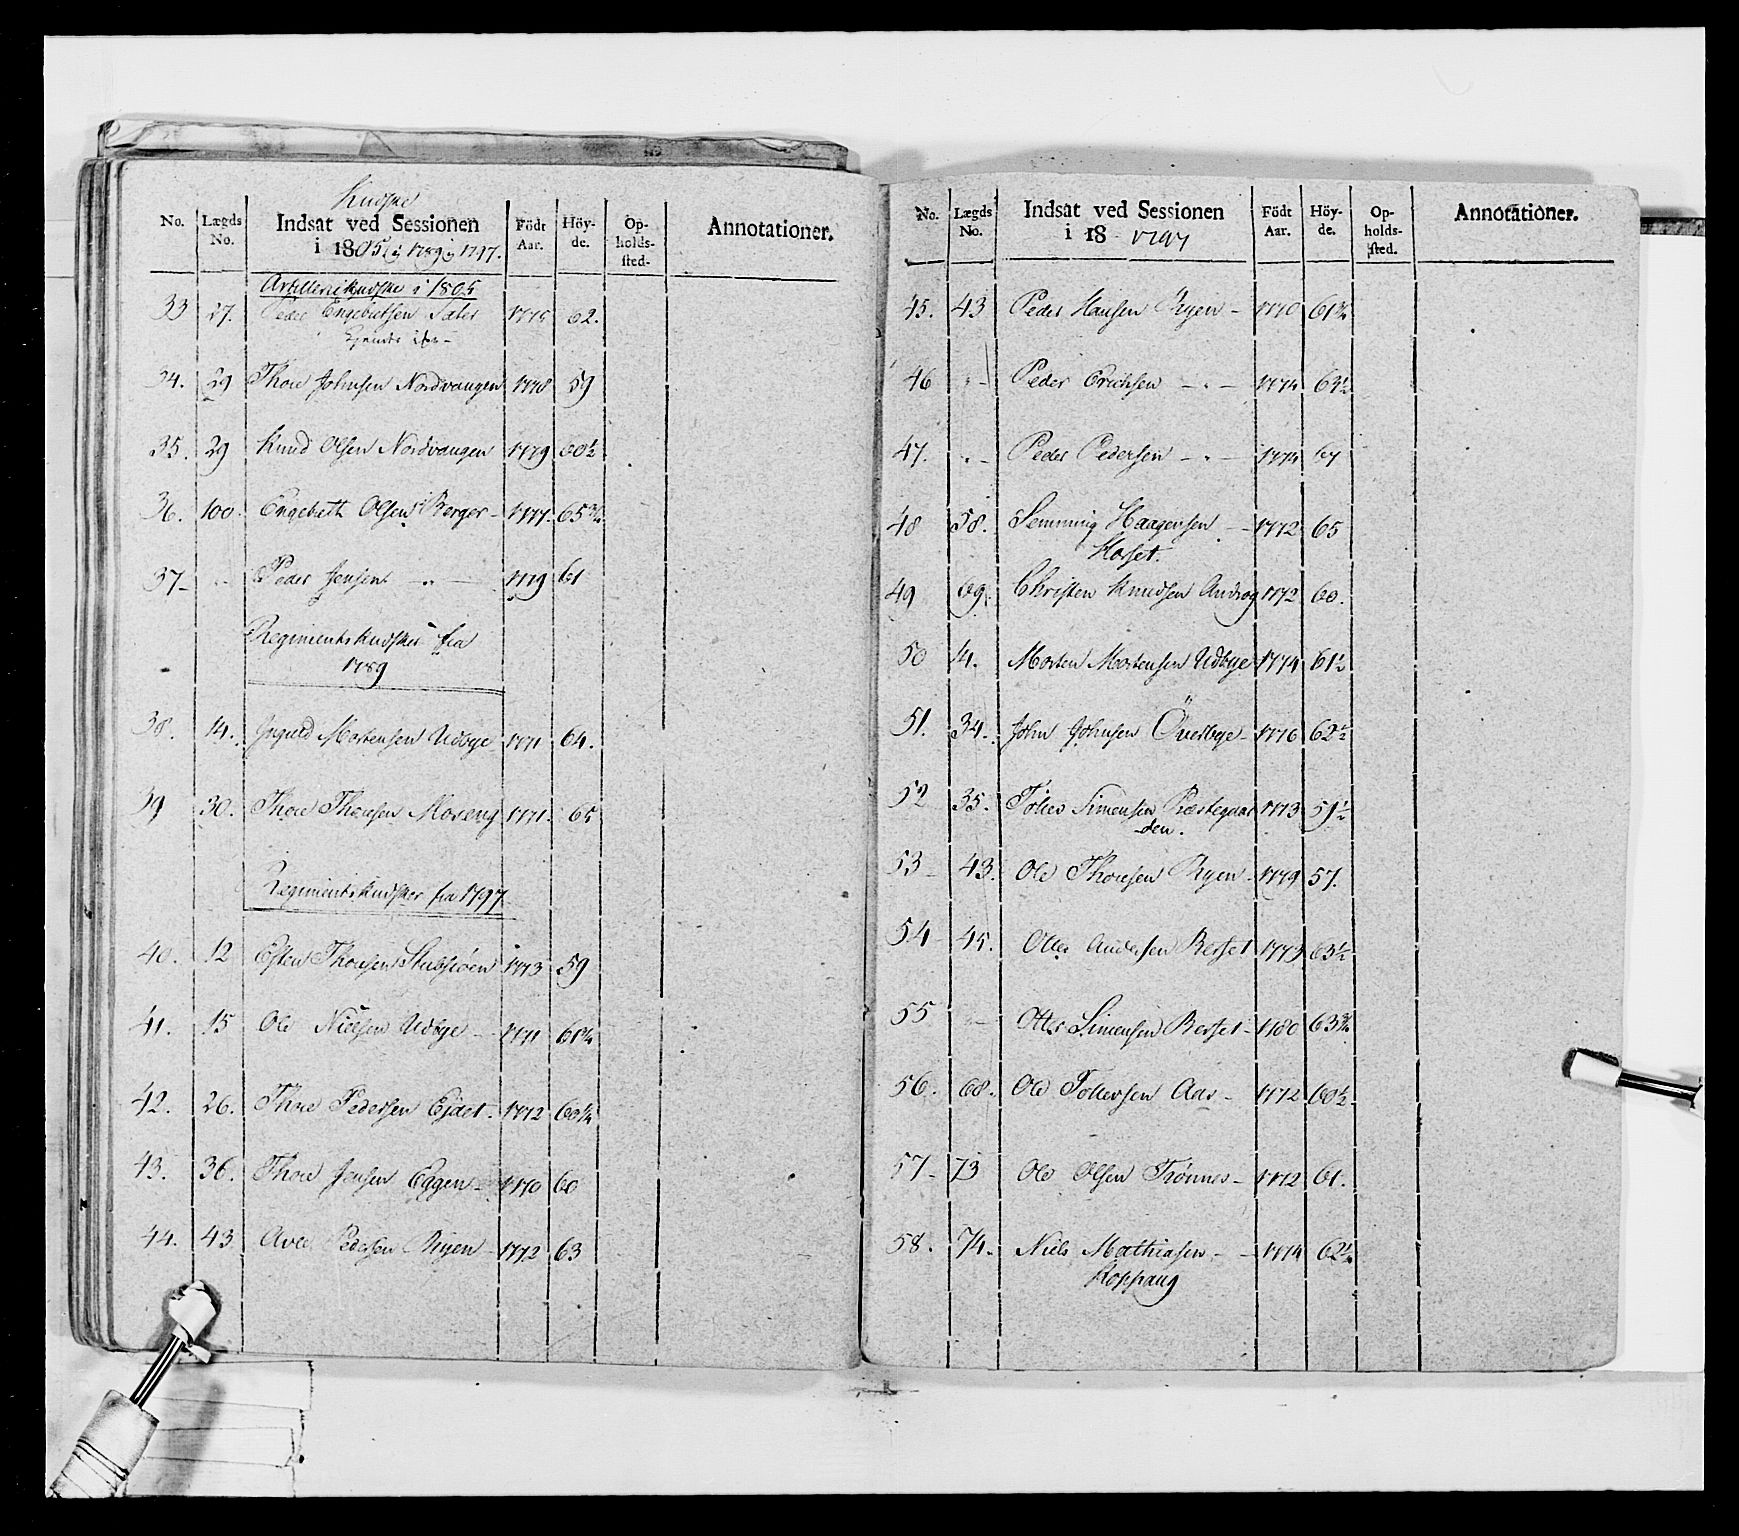 No. Lægds No. Indsat ved Sessionen i 1805 i 1789 i 1797. Födt Aar. Höy- de. Op- holds- sted. Annotationer.
Kudske
Artilleriekudske i 1805
33 27. Peder Engebretsen Sæter 1775 62.
34. 29 Thore Johnsen Nordvangen 1778 59
35. 29 Knud Olsen Nordvangen 1779 60½
36. 100. Engebreth Olsen Berger - 1777. 65¾
37- Peder Jensen —„— 1779 61
Regimentskudsker fra
1789
38. 14. Ingvald Mortensen Udbye 1771 64.
39 30. Thore Thoresen Moreng 1771. 65
Regimentskudsker fra 1797
40. 12 Esten Thoresen Stubsiöen 1773 59
41. 15 Ole Nielsen Udbye - 1771 61¾
42. 26. Thore Pedersen Ejdet. 1772 60¼
43. 36. Thore Jensen Eggen - 1770 60
44. 43 Aved Pedersen Ryen - 1772 63
No. Lægds No. Indsat ved Sessionen i 18 1797 Födt Aar. Höy- de. Op- holds- sted. Annotationer.
45. 43 Peder Hansen Ryen - 1770 61¾
46 „- Peder Erichsen —„— 1774 63½
47. „- Peder Pedersen —„— 1774 67
48 58. Semming Haagensen - 1772 65
Korset.
49 69. Christen Knudsen Androg 1772 60.
50 14. Morten Mortensen Udbye 1774 61½
51. 34. John Johnsen Överbye - 1776 62½
52 35. Tollev Simensen Præstegaar 1773 51½
-den.
53- 43. Ole Thoresen Ryen - 1779 57.
54 45. Otter Andersen Berset 1773 63½
55 „- Otter Simensen Berset - 1780 63¾
56. 68. Ole Tollevsen Aas - 1772 60½
57- 73 Ole Olsen Trönnes - 1772 61.
58. 74. Niels Mathiasen - - 1774 62½
Koppang